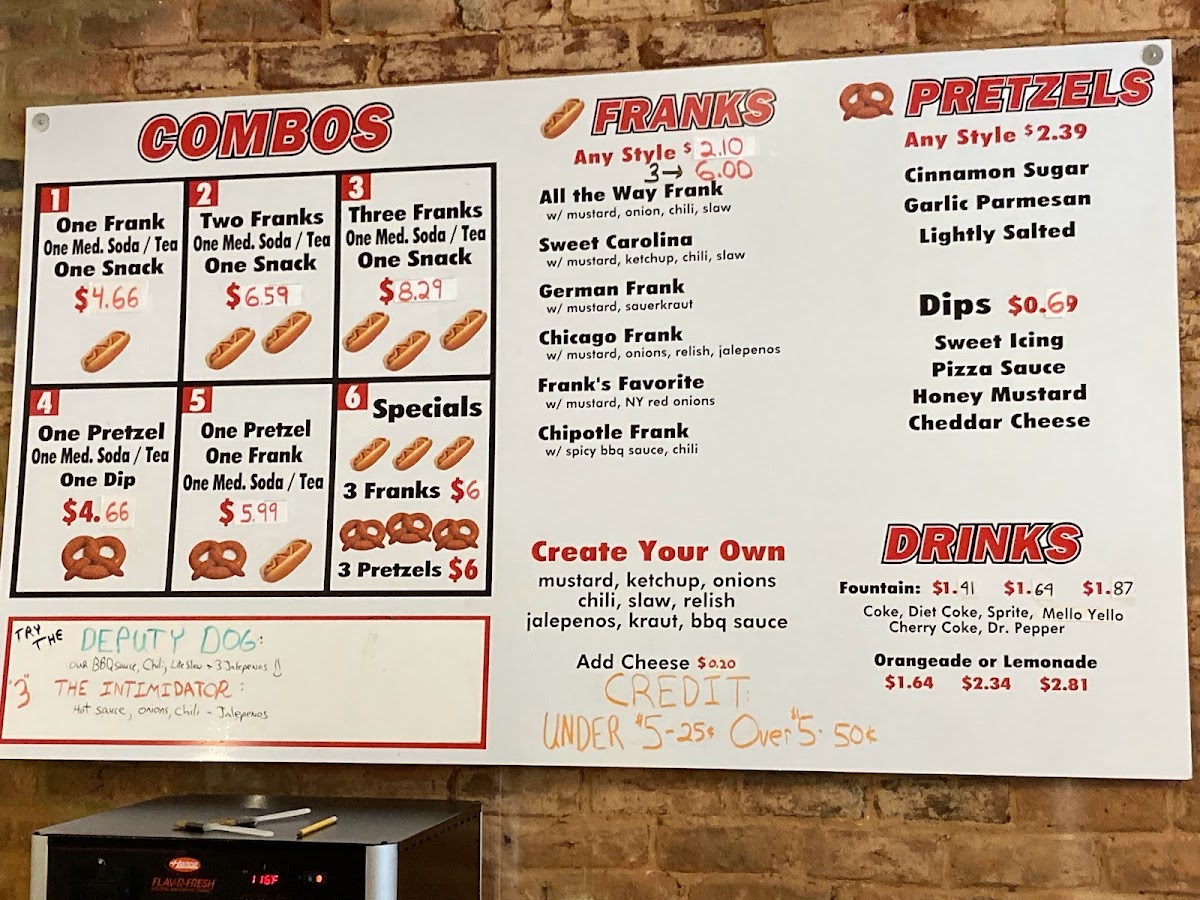 COMBOS
1
One Frank
One Med. Soda / Tea
One Snack
$4.66
2
Two Franks
One Med. Soda / Tea
One Snack
$6.59
3
Three Franks
One Med. Soda / Tea
One Snack
$8.29
4
One Pretzel
One Med. Soda / Tea
One Dip
$4.66
5
One Pretzel
One Frank
One Med. Soda / Tea
$5.99
6
Specials
3 Franks $6
3 Pretzels $6
TRY THE DEPUTY DOG:
our BBQ sauce, Chili, Lite Slaw + 3 Jalepenos
"3" THE INTIMIDATOR:
Hot sauce, onions, Chili - Jalepenos
FRANKS
Any Style $2.10
3→ 6.00
All the Way Frank
w/ mustard, onion, chili, slaw
Sweet Carolina
w/ mustard, ketchup, chili, slaw
German Frank
w/ mustard, sauerkraut
Chicago Frank
w/ mustard, onions, relish, jalepenos
Frank's Favorite
w/ mustard, NY red onions
Chipotle Frank
w/ spicy bbq sauce, chili
Create Your Own
mustard, ketchup, onions
chili, slaw, relish
jalepenos, kraut, bbq sauce
Add Cheese $0.20
CREDIT:
UNDER $5-25¢ Over $5. 50¢
PRETZELS
Any Style $2.39
Cinnamon Sugar
Garlic Parmesan
Lightly Salted
Dips $0.69
Sweet Icing
Pizza Sauce
Honey Mustard
Cheddar Cheese
DRINKS
Fountain: $1.41 $1.69 $1.87
Coke, Diet Coke, Sprite, Mello Yello
Cherry Coke, Dr. Pepper
Orangeade or Lemonade
$1.64 $2.34 $2.81
Hatco
FLAV-R-FRESH
116F